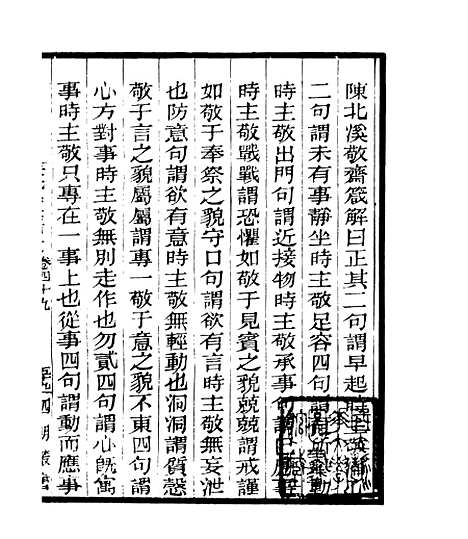 陳北溪敬齋箴解曰正其二句謂早起時
二句謂未有事靜坐時主敬足容四句謂
時主敬出門句謂近接物時主敬承事句謂
時主敬戰戰謂恐懼如敬于見賓之貌兢兢謂戒謹
如敬于奉祭之貌守口句謂欲有言時主敬無妄泄
也防意句謂欲有意時主敬無輕動也洞洞謂質慤
敬于言之貌屬屬謂專一敬于意之貌不東四句謂
心方對事時主敬無別走作也勿貳四句謂心旣寓
事時主敬只專在一事上也從事四句謂動而應事
卷四十九
四明叢書